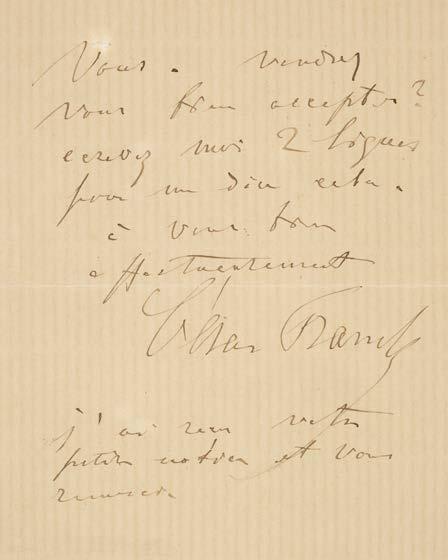 Vous. voudrez
vous bien accepter?
ecrivez moi 2 lignes
pour me dire cela.
à vous bien
affectueusement
César Franck
j'ai reçu votre
petite notice et vous
remercie